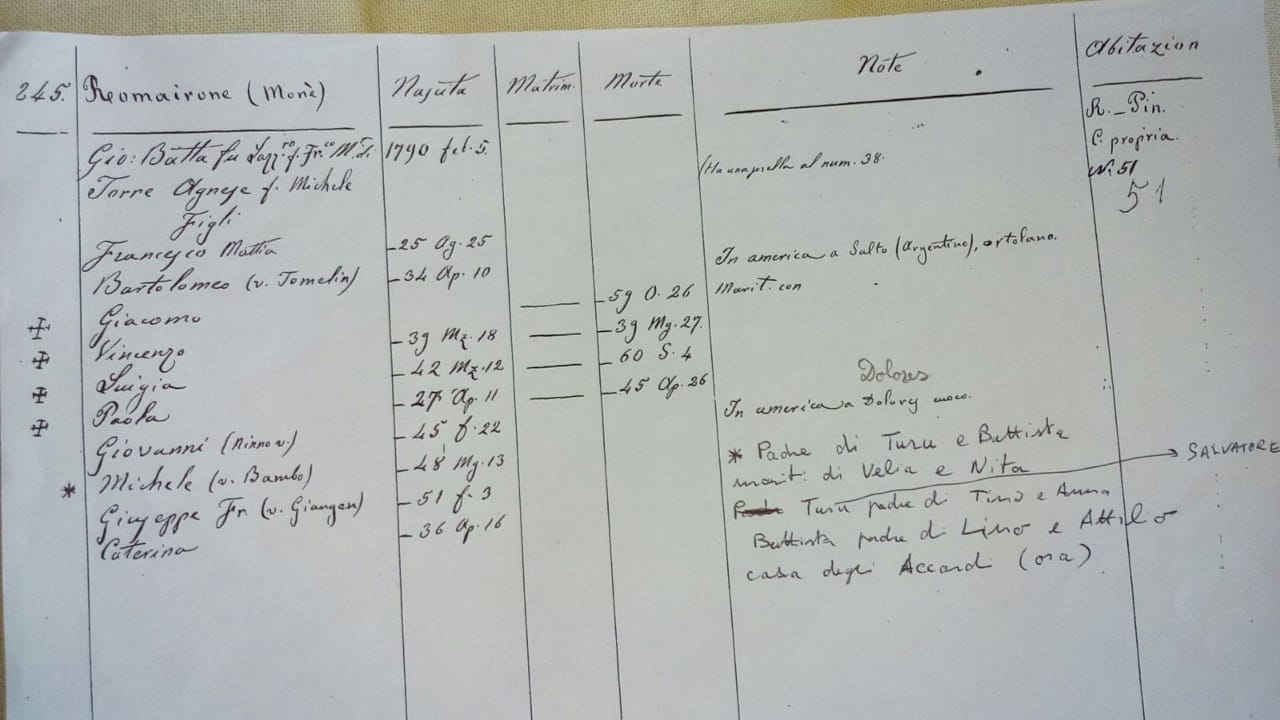 245. Reomairone (Monè) Najuta Matrim. Morte Note Abitazion
Gio: Batta fu Lazz.ro f. Fr.co M.a 1790 feb. 5. Ha una prella al num. 38. R. Pin.
C. propria.
Torre Agneje f. Michele N. 51
51
Figli
Francejco Mattia - 25 Ag. 25 In america a Salto (Argentino), ortolano.
Bartolomeo (v. Tomelin) - 34 Ap. 10 Marit. con
Giacomo — - 59 O. 26
Vincenzo - 39 Mz. 18 — - 39 Mg. 27.
Luigia - 42 Mz. 12 — - 60 S. 4
Paola - 27 Ap. 11 — - 45 Ap. 26 Dolores
In america a cuoco.
Giovanni (Ninno v.) - 45 f. 22
* Michele (v. Bambo) - 48 Mg. 13
Giujeppe Fr. (v. Giangen) - 51 f. 3
Caterina - 36 Ap. 16
* Padre di Turu e Battista
mariti di Velia e Nita
SALVATORE
Padre Turu padre di Tino e Anna
Battista padre di Lino e Attilo
casa degli Accardi (ora)